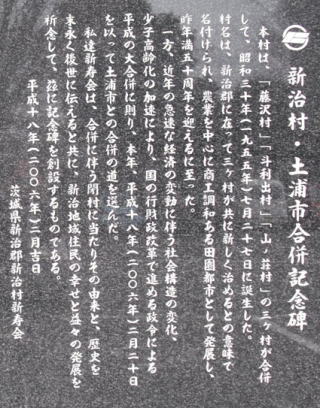 新治村・土浦市合併記念碑
本村は、「藤沢村」「斗利出村」「山ノ荘村」の三ヶ村が合併
して、昭和三十年(一九五五年)七月二十七日に誕生した。
村名は、新治郡に在って三ヶ村が共に新しく治めるとの意味で
名付けられ、農業を中心に商工調和ある田園都市として発展し、
昨年満五十周年を迎えるに至った。
一方、近年の急速な経済の変動に伴う社会構造の変化、
少子高齢化の加速により、国の行財政改革で進める政令による
平成の大合併に則り、本年、平成十八年(二〇〇六年)二月二十日
を以って土浦市との合併の道を選んだ。
私達新寿会は、合併に伴う閉村に当たりその由来と、歴史を
末永く後世に伝えると共に、新治地域住民の幸せと益々の発展を
祈念して、茲に記念碑を創設するものである。
平成十八年(二〇〇六年)二月吉日
茨城県新治郡新治村新寿会